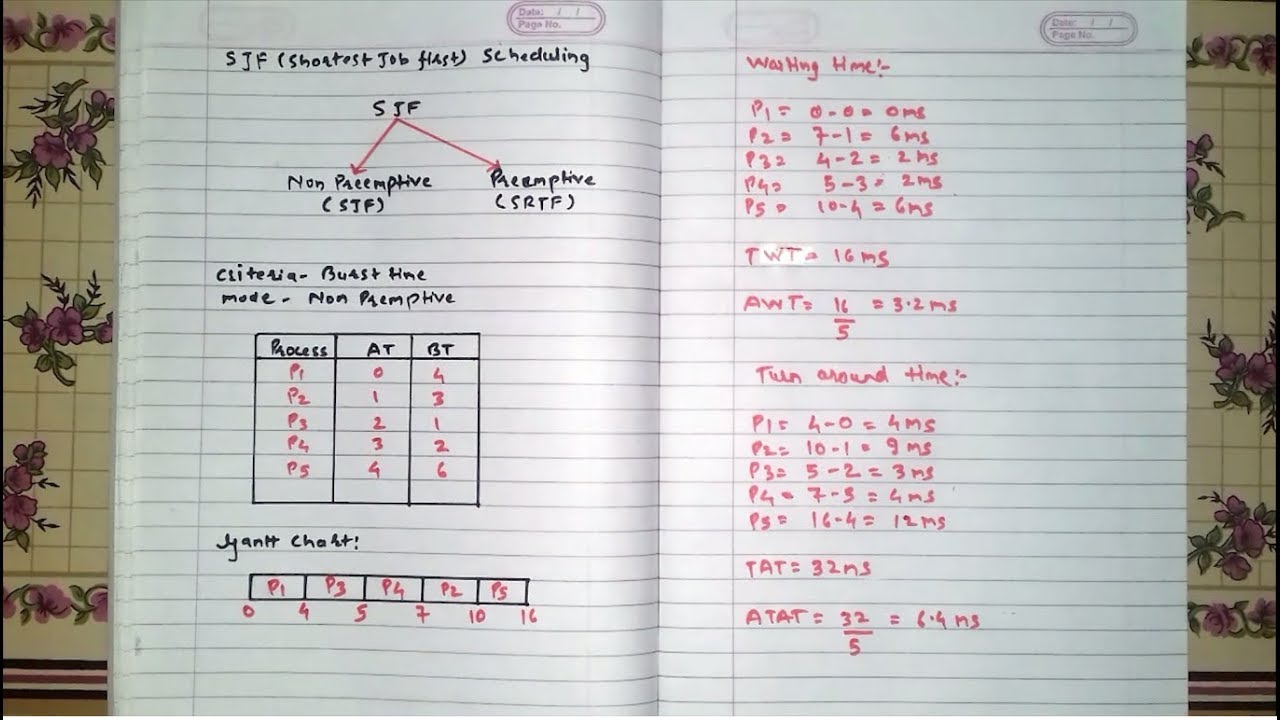 Date: / /
Page No.
SJF (Shortest Job first) Scheduling
SJF
Non Preemptive
(SJF)
Preemptive
(SRTF)
Criteria- Burst time
mode - Non Premptive
Process AT BT
P1 0 4
P2 1 3
P3 2 1
P4 3 2
P5 4 6
Gantt Chart:
P1 P3 P4 P2 P5
0 4 5 7 10 16
Date: / /
Page No.
Waiting time:-
P1 = 0-0 = 0ms
P2 = 7-1 = 6ms
P3 = 4-2 = 2ms
P4 = 5-3 = 2ms
P5 = 10-4 = 6ms
TWT = 16ms
AWT = 16/5 = 3.2ms
Turn around time:-
P1 = 4-0 = 4ms
P2 = 10-1 = 9ms
P3 = 5-2 = 3ms
P4 = 7-3 = 4ms
P5 = 16-4 = 12ms
TAT = 32ms
ATAT = 32/5 = 6.4ms